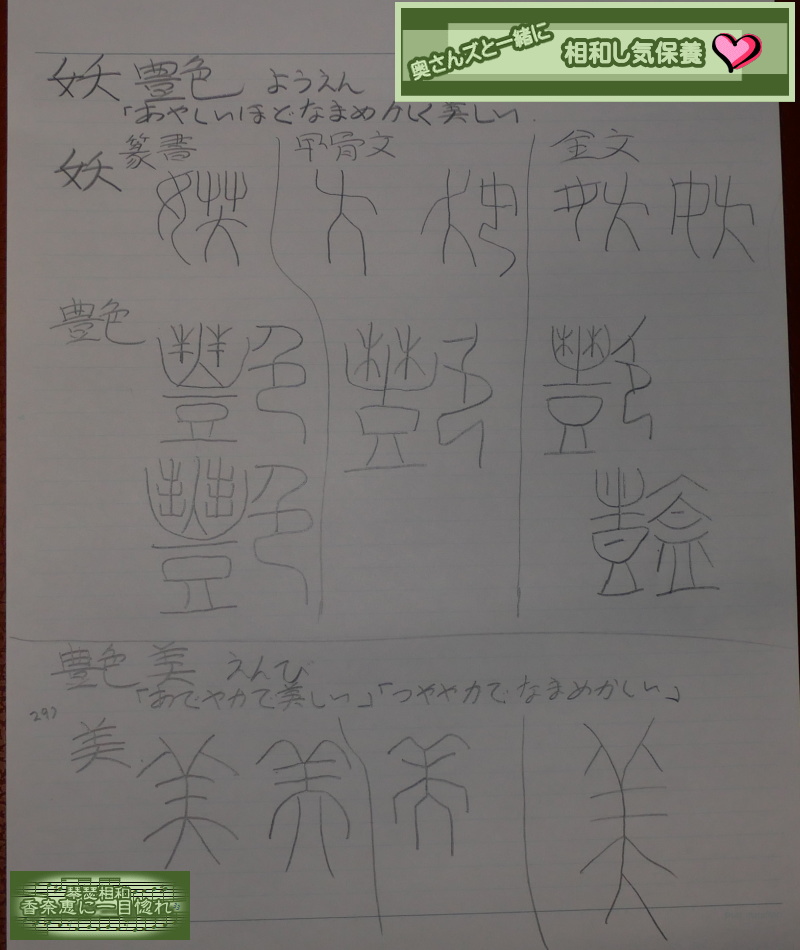 奥さんズと一緒に
相和し気保養
妖艶 ようえん
「あやしいほどなまめかしく美しい
妖 篆書 甲骨文 金文
艶
艶美 えんび
「あでやかで美しい」「つややかでなまめかしい」
297
美
琴瑟相和
香奈恵に一目惚れ